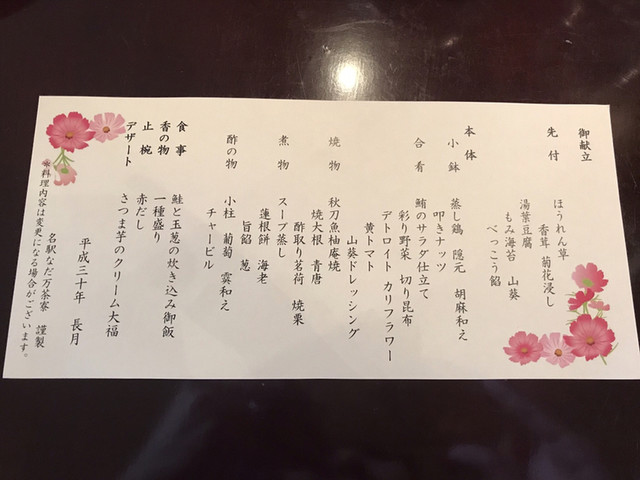 御献立
先付
ほうれん草
香茸 菊花浸し
湯葉豆腐
もみ海苔 山葵
べっこう餡
本体
小鉢
蒸し鶏 隠元 胡麻和え
叩きナッツ
合肴
鮪のサラダ仕立て
彩り野菜 切り昆布
デトロイト カリフラワー
黄トマト
山葵ドレッシング
焼物
秋刀魚柚庵焼
焼大根 青唐
酢取り茗荷 焼栗
煮物
スープ蒸し
蓮根餅 海老
旨餡 葱
酢の物
小柱 葡萄 霙和え
チャービル
食事
鮭と玉葱の炊き込み御飯
香の物
一種盛り
止椀
赤だし
デザート
さつま芋のクリーム大福
平成三十年 長月
名駅なだ万茶寮 謹製
※料理内容は変更になる場合がございます。